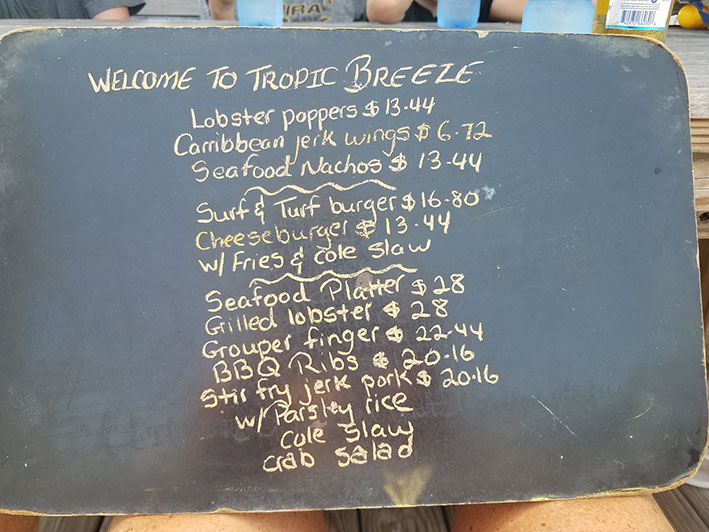 WELCOME TO TROPIC BREEZE
Lobster poppers $ 13.44
Carribbean jerk wings $ 6.72
Seafood Nachos $ 13.44
Surf & Turf burger $ 16.80
Cheeseburger $ 13.44
w/ Fries & cole slaw
Seafood Platter $ 28
Grilled lobster $ 28
Grouper finger $ 22.44
BBQ Ribs $ 20.16
Stir fry jerk pork $ 20.16
w/ Parsley rice
cole slaw
crab salad